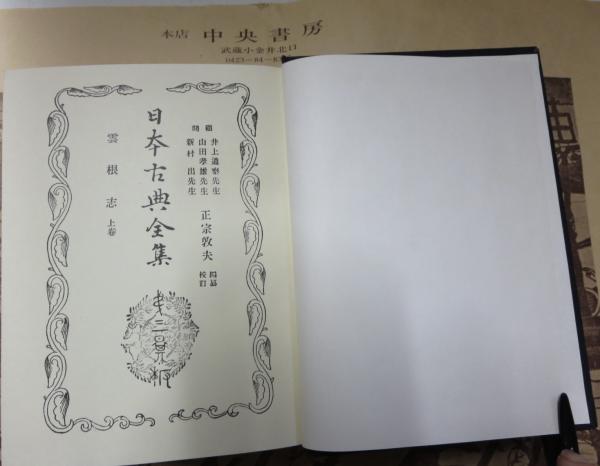 本店 中央書房
武蔵小金井北口
0423-84-
顧問
井上通泰先生
山田孝雄先生
新村出先生
正宗敦夫 編纂 校訂
日本古典全集
雲根志 上卷